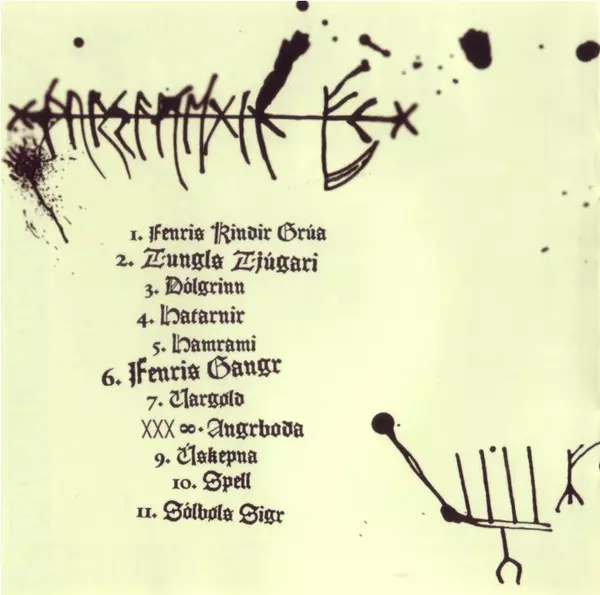 1. Fenris Kindir Grúa
2. Tungls Tjúgari
3. Dólgrinn
4. Hatarnir
5. Hamrami
6. Fenris Gangr
7. Vargøld
ᚷᚷᚷ ∞· Angrboða
9. Úskepna
10. Spell
11. Sólbøls Sigr